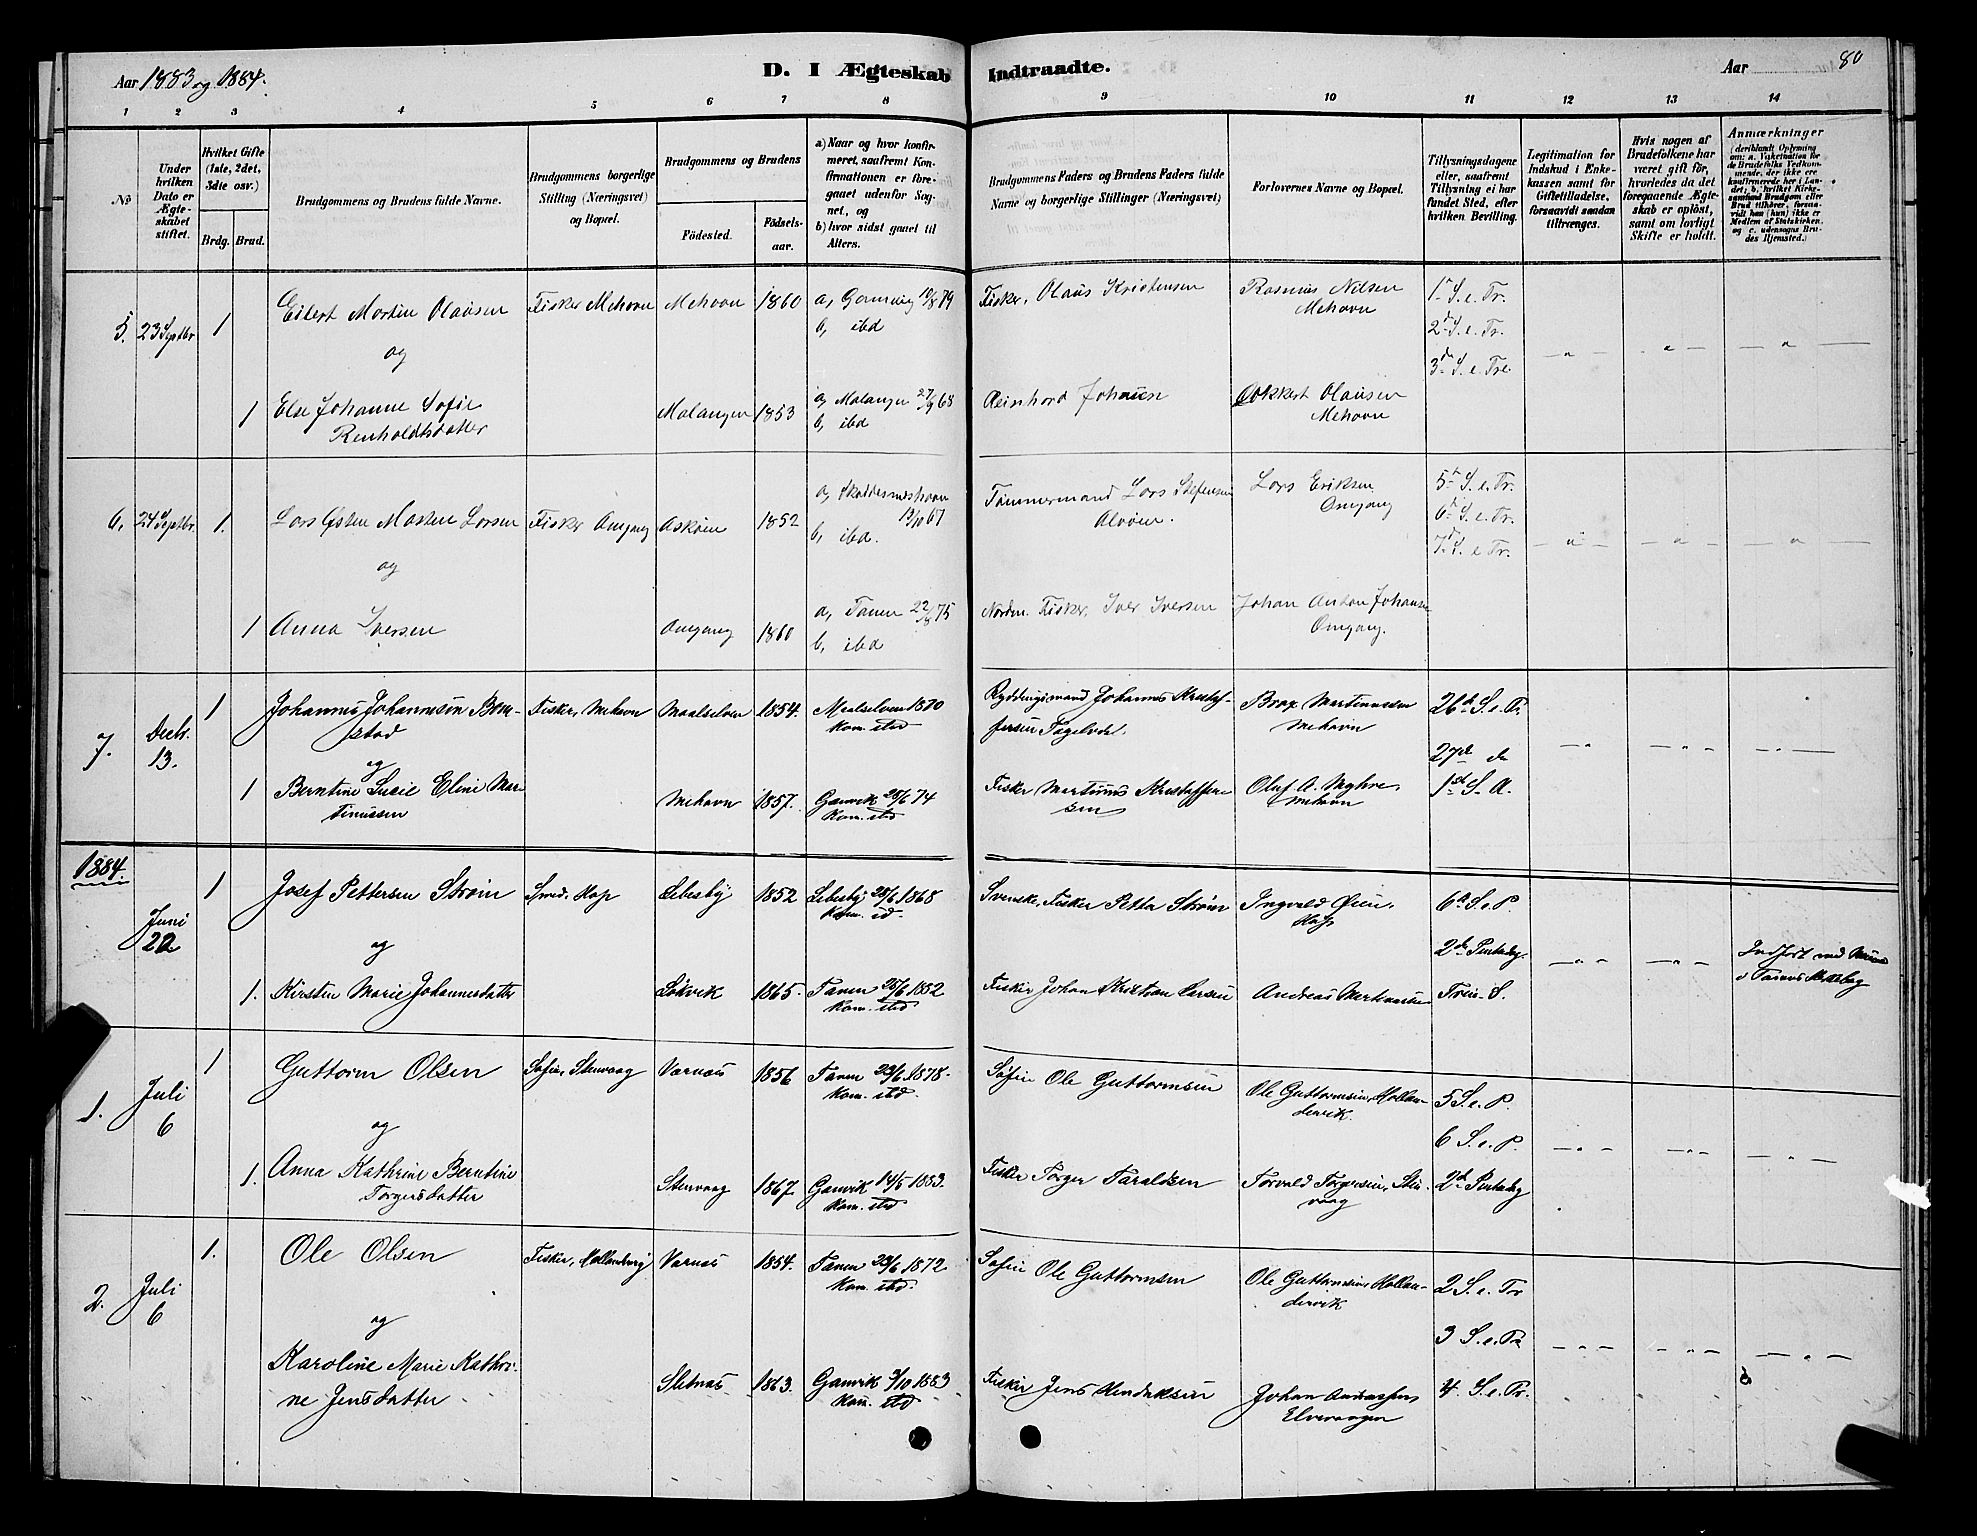 Aar 1883 og 1884.
D. I Ægteskab Indtraadte.
Aar
80
1 2 3 4 5 6 7 8 9 10 11 12 13 14
No
Under hvilken Dato er Ægteskabet stiftet.
Hvilket Gifte (1ste, 2det, 3die osv.)
Brdg. Brud.
Brudgommens og Brudens fulde Navne.
Brudgommens borgerlige Stilling (Næringsvei) og Bopæl.
Brudgommens og Brudens
Fødested. Fødselsaar.
a) Naar og hvor konfirmeret, saafremt Konfirmationen er foregaaet udenfor Sognet, og
b) hvor sidst gaaet til Alters.
Brudgommens Faders og Brudens Faders fulde Navne og borgerlige Stillinger (Næringsvei)
Forlovernes Navne og Bopæl.
Tillysningsdagene eller, saafremt Tillysning ei har fundet Sted, efter hvilken Bevilling.
Legitimation for Indskud i Enkekassen samt for Giftetilladelse, forsaavidt saadan tiltrænges.
Hvis nogen af Brudefolkene har været gift før, hvorledes da det foregaaende Ægteskab er opløst, samt om lovligt Skifte er holdt.
Anmærkninger (deriblandt Oplysning om: a. Vaksination for de Brudefolks Vedkommende, der ikke ere konfirmerede her i Landet, b. hvilket Kirkesamfund Brudgom eller Brud tilhører, forsaavidt han (hun) ikke er Medlem af Statskirken, og c. udensogns Brudes Hjemsted.)
5. 23 Septbr 1 Eilert Martin Olausen Fisker Mehavn Mehavn 1860 a, Gamvig 10/8 79 Fisker, Olaus Kristensen Rasmus Nilsen 1ste S. e. Tr.
b, ibd Mehavn 2d S. e. Tr.
og 3de S. e. Tre
1 Else Johanne Sofie Malangen 1853 a, Malangen 27/9 68 Reinhard Johansen Ockkert Olausen
Renholdtsdatter b, ibd Mehavn
6, 24 Septbr. 1. Lars Østen Morten Larsen Fisker Omgang Askøen 1852 a, Skaddesneshavn 13/10 67 Tømmermand Lars Stefensen Lars Eriksen 5te S. e. Tr.
b, ibd. Alvøen. Omgang 6te S. e. Tr.
og 7de S. e Tr.
1 Anna Iversen Omgang 1860 a, Tanen 22/8 75 Nordm. Fisker, Iver Iversen Johan Anton Johansen
b, ibd Omgang.
7. Decbr. 13. 1 Johannes Johannesen Bomstad Fisker, Mehavn Maalselven 1854. Maalselven 1870 Rydningsmand Johannes Kristofersen Brox Martinussen 26de S. e. Tr.
Kom. ibd Mehavn
og 27de do
1 Berntine Lucie Eline Mar- Mehavn 1857. Gamvik 28/6 74 Fisker Martinus Kristoffer- Oluf A. Myhre, 1ste S. A.
tinussen Kom. ibd sen Mehavn
1884.
Juni 22 1 Josef Pettersen Strøm Smed. Hop Lebesby 1852 Lebesby 28/6 1868 Svenske, Fisker Petter Strøm Ingvald Øien, 6te S. e. P.
Kom. id. Hop
og 2den Pintsdag.
1. Kirsten Marie Johannesdatter Løkvik 1865. Tanen 25/6 1882 Fisker Johan Kristian Larsen Andreas Martinussen Trein. S.
Kom. ibd
1. Juli 6 1 Guttorm Olsen Søfin, Stenvaag Varnæs 1856 Tanen 23/6 1878. Søfin Ole Guttormsen Ole Guttormsen, Hollan- 5 S. e. P.
Kom. ibd. dervik.
og 6 S. e. P.
1. Anna Kathrine Berntine Stenvaag 1867. Gamvik 14/5 1883. Fisker Torger Taraldsen Torvald Torgersen, Sten- 2d Pintsdag
Torgersdatter Kom. ibd vaag
2. Juli 6 1. Ole Olsen Fisker, Hollandervig Varnæs 1854. Tanen 23/6 1872 Søfin Ole Guttormsen Ole Guttormsen, Hollan- 2 S. e. Tr
Kom. ibd. dervik
og 3 S. e. Tr
Karoline Marie Kathri- Sletnæs 1863. Gamvik 9/10 1883. Fisker Jens Hendriksen Johan Andreassen 4. S. e. Tr.
ne Jensdatter Kom. ibd Elvevaagen